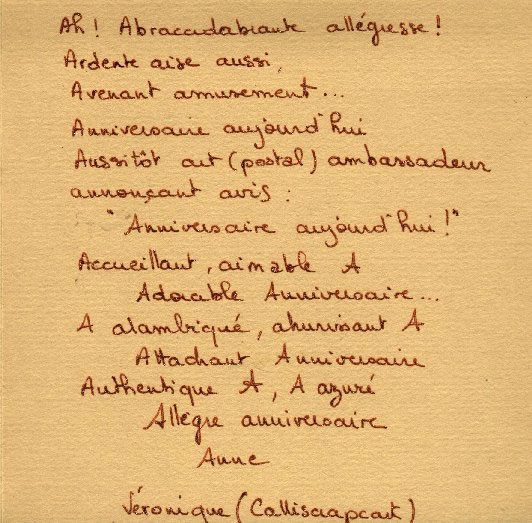 Ah ! Abracadabrante allégresse !
Ardente aise aussi,
Avenant amusement...
Anniversaire aujourd'hui
Aussitôt art (postal) ambassadeur
annonçant avis :
"Anniversaire aujourd'hui !"
Accueillant, aimable A
Adorable Anniversaire...
A alambiqué, ahurissant A
Attachant Anniversaire
Authentique A, A azuré
Allègre anniversaire
Anne
Véronique (Calliscrapcart)